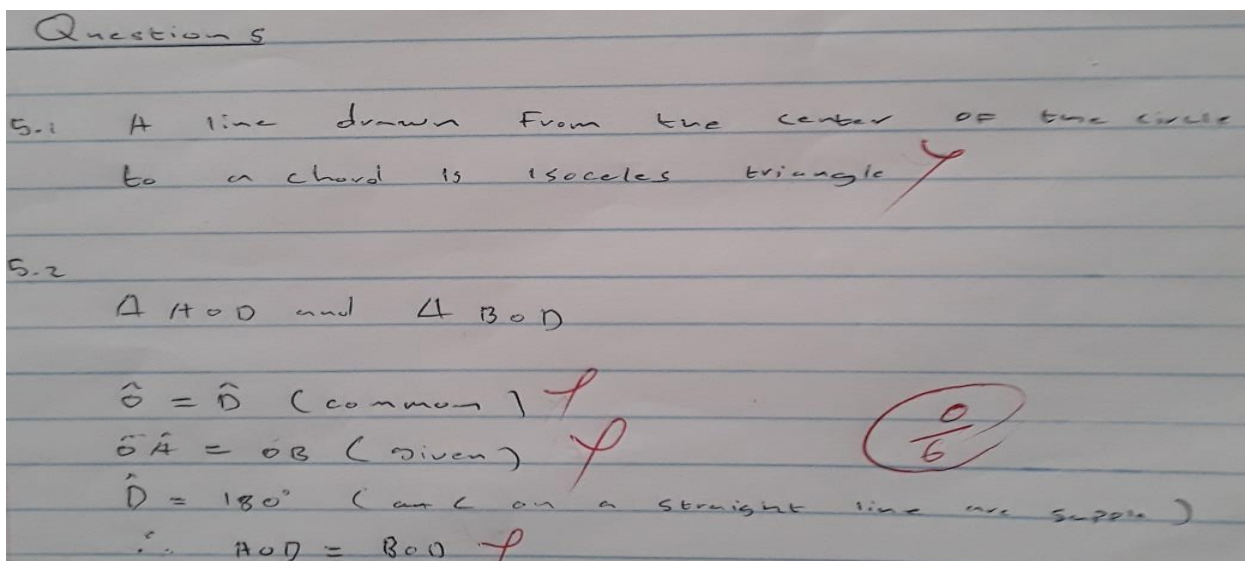 Question 5
5.1 A line drawn From the center OF the circle
to a chord is isoceles triangle
5.2
Δ AOD and Δ BOD
ô = D̂ (common)
ōÂ = OB (given)
0/6
D̂ = 180° (on a straight line are supple)
∴ AOD = BOD